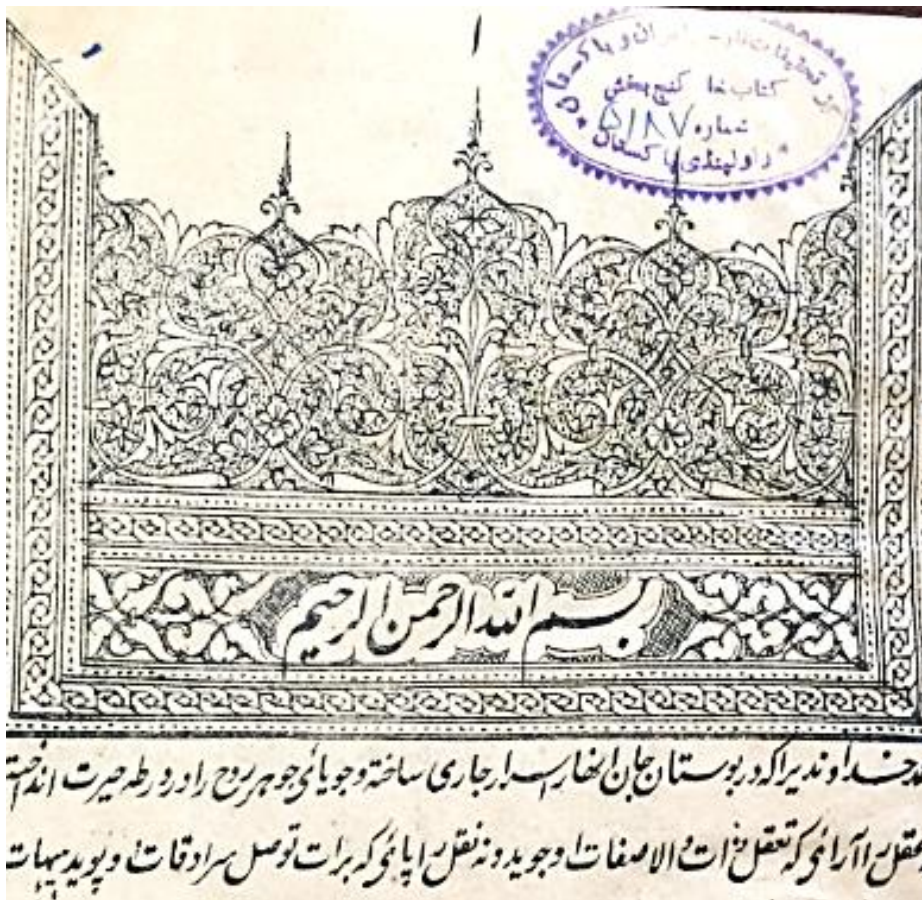 مرکز تحقیقات فارسی ایران و پاکستان
کتابخانه گنج بخش
شماره ۵۱۸۷
راولپندی پاکستان
بسم الله الرحمن الرحیم
خداوندیرا که در بوستان جان انهار اسرار جاری ساخته و جویائی جوهر روح را در ورطه حیرت
که تعقل ذات والاصفات او جوید و نه نقل که برات توصل سرادقات او پوید هیهات